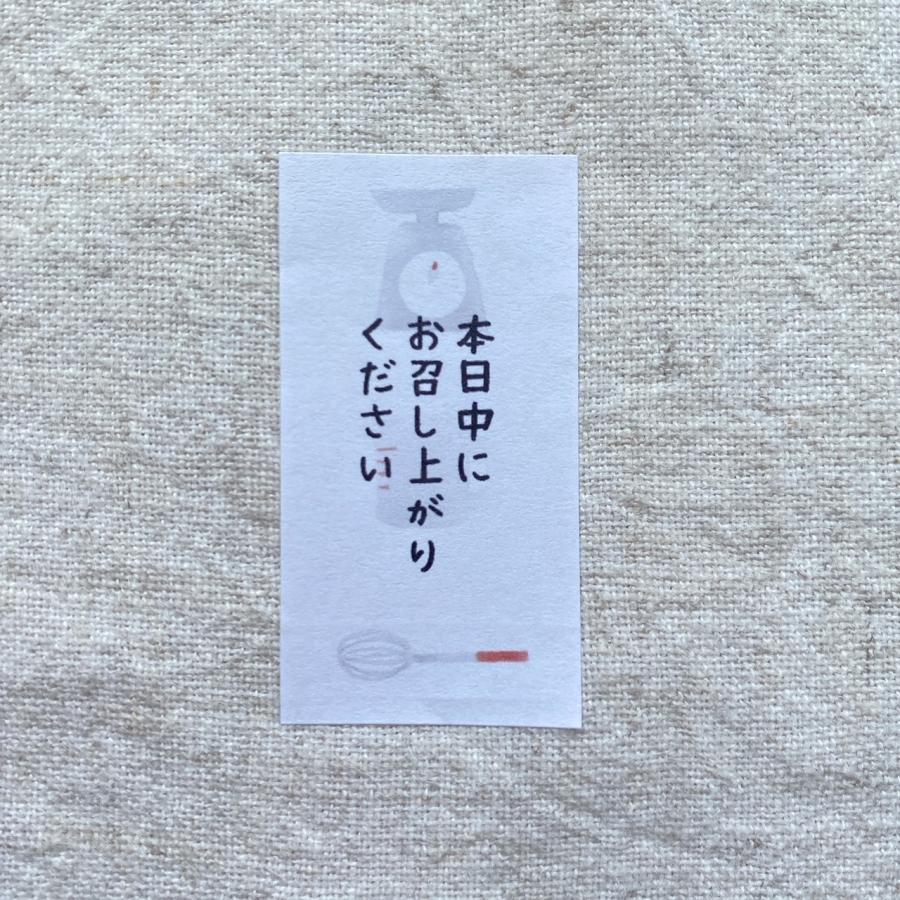 本日中に
お召し上がり
ください